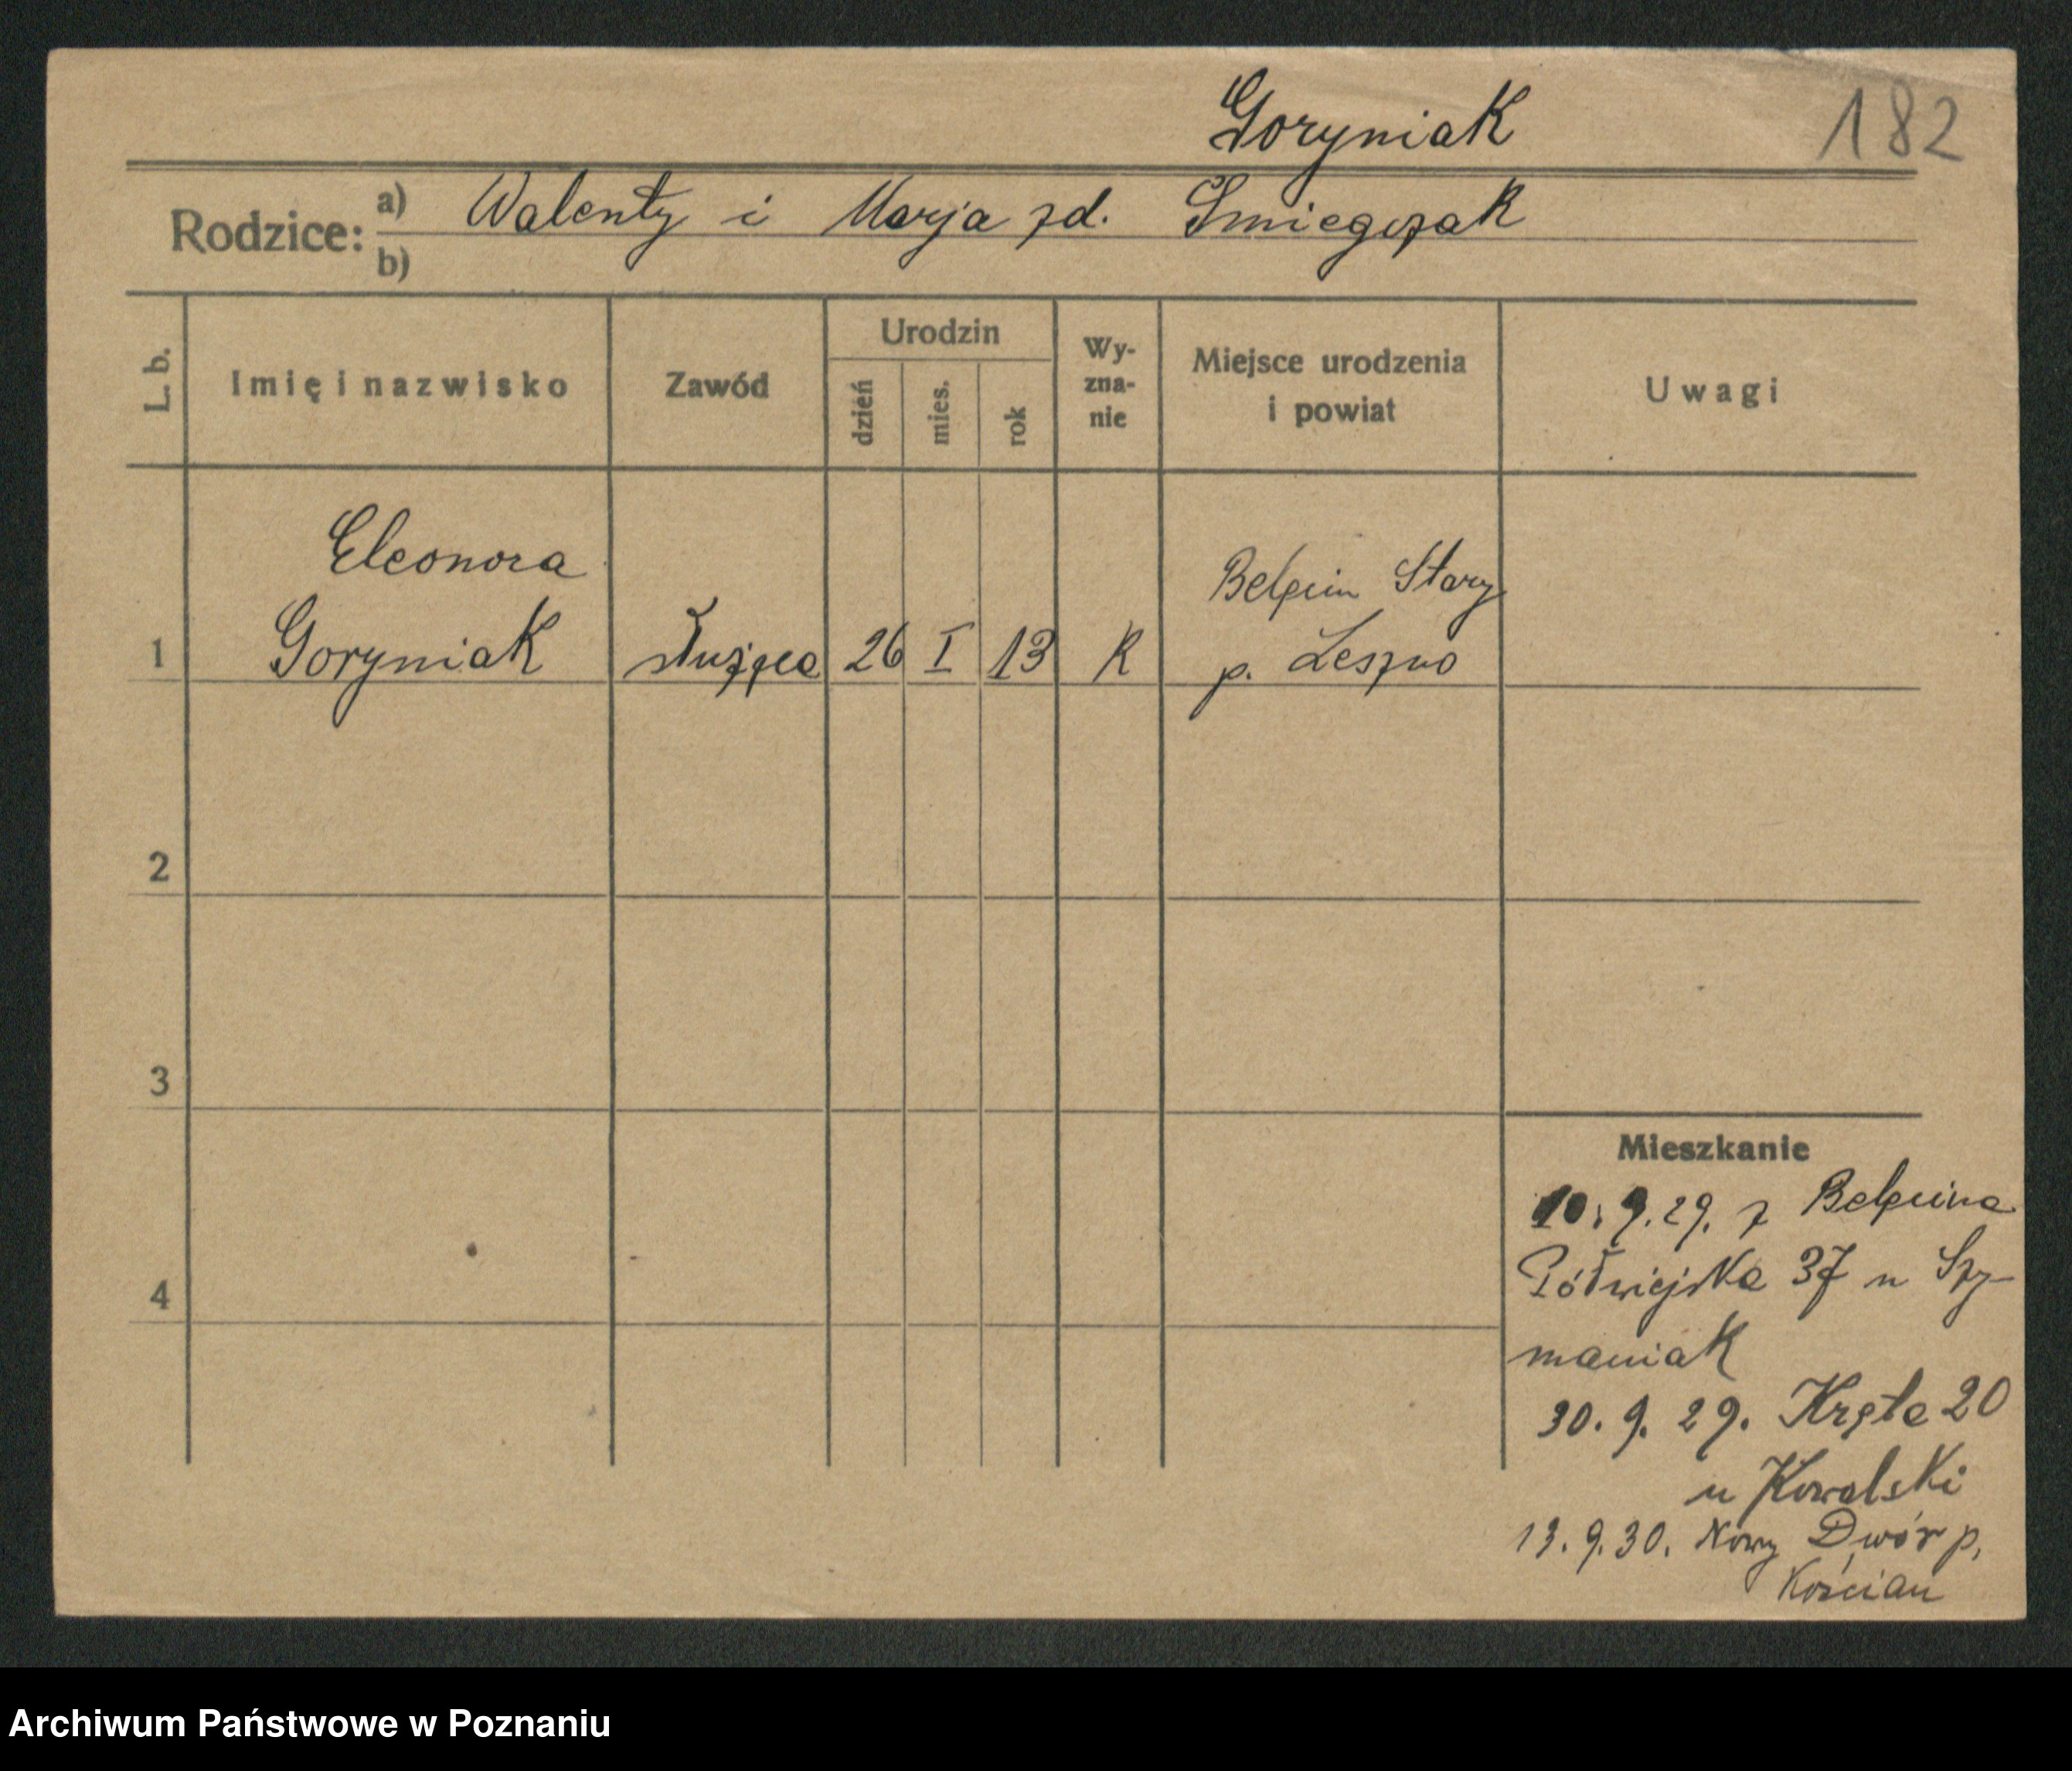 Goryniak
182
Rodzice: a) Walenty i Marja zd. Śmiegczak
b)
L. b.
Imię i nazwisko
Zawód
Urodzin
dzień
mies.
rok
Wy-
zna-
nie
Miejsce urodzenia
i powiat
Uwagi
Eleonora
Belęcin Stary
1 Goryniak służąca 26 I 13 R p. Leszno
2
3
4
Mieszkanie
10. 9. 29. z Belęcina
Półwiejska 37 u Szy-
maniak
30. 9. 29. Kręta 20
u Kowalski
13. 9. 30. Nowy Dwór p.
Kościan
Archiwum Państwowe w Poznaniu